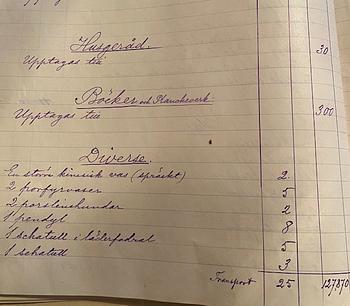 Husgeråd.
Upptagas till 30
Böcker och Planchverk
Upptagas till 300
Diverse.
En större kinesisk vas (spräckt) 2
2 porfyrvaser 5
2 porslinshundar 2
1 pendyl 8
1 schatull i läderfodral 5
1 schatull 3
Transport 25 127870